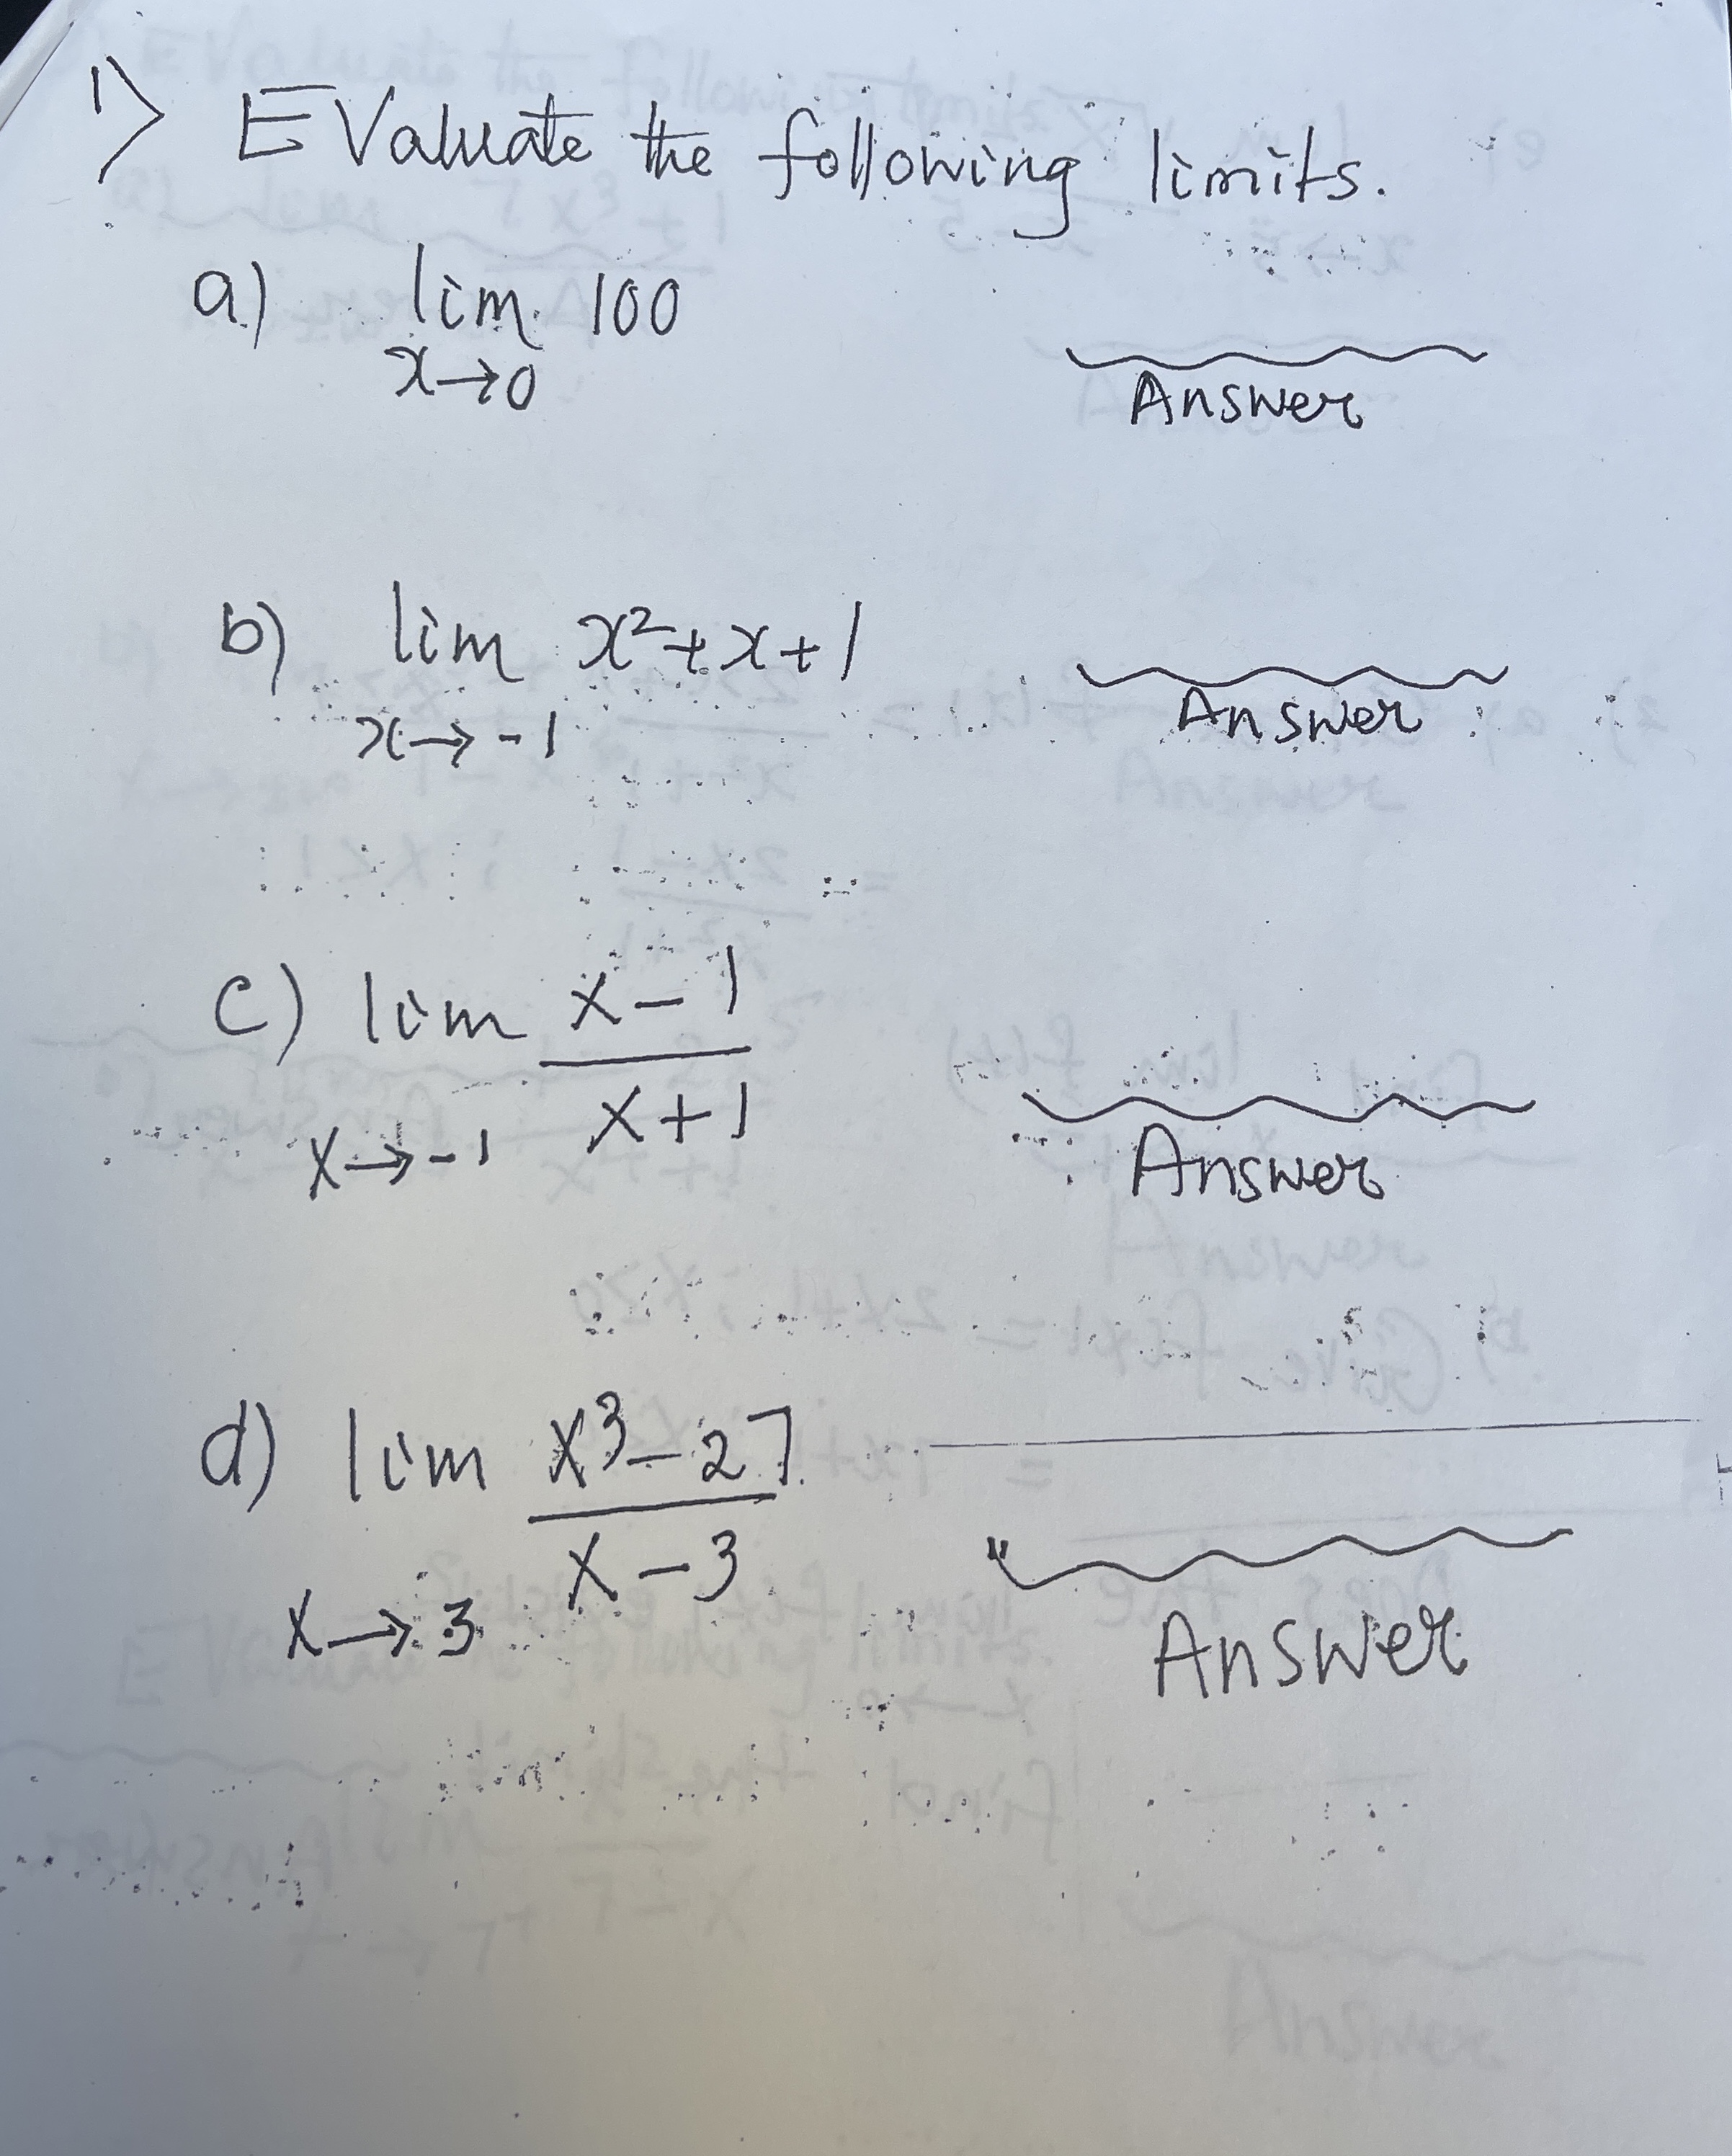 1) EValuate the following limits.
a) lim 100
x→0
Answer
b) lim x²+x+1
x→-1
Answer
c) lim x-1
x+1
x→-1
Answer
d) lim x³-27
x-3
x→3
Answer